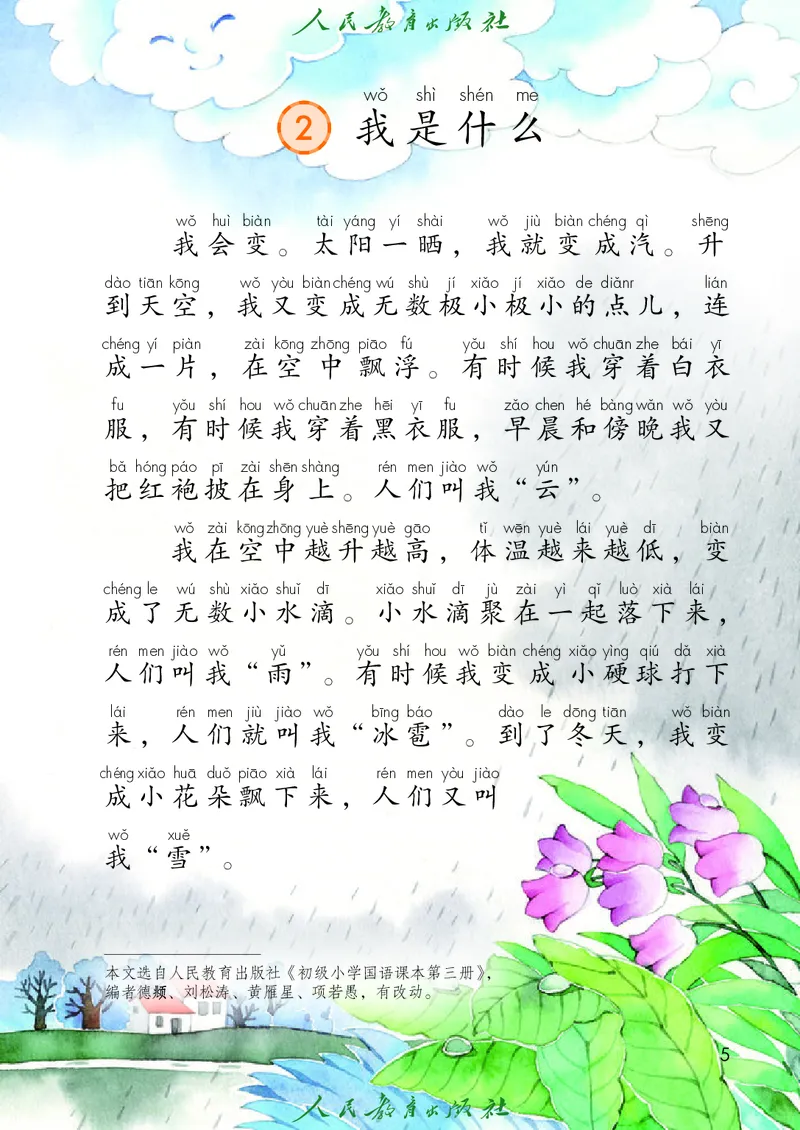 人民教育出版社
wǒ shì shén me
2 我是什么
wǒ huì biàn tài yáng yí shài wǒ jiù biàn chéng qì shēng
我会变。太阳一晒，我就变成汽。升
dào tiān kōng wǒ yòu biàn chéng wú shù jí xiǎo jí xiǎo de diǎnr lián
到天空，我又变成无数极小极小的点儿，连
chéng yí piàn zài kōng zhōng piāo fú yǒu shí hou wǒ chuān zhe bái yī
成一片，在空中飘浮。有时候我穿着白衣
fu yǒu shí hou wǒ chuān zhe hēi yī fu zǎo chen hé bàng wǎn wǒ yòu
服，有时候我穿着黑衣服，早晨和傍晚我又
bǎ hóng páo pī zài shēn shàng rén men jiào wǒ yún
把红袍披在身上。人们叫我“云”。
wǒ zài kōng zhōng yuè shēng yuè gāo tǐ wēn yuè lái yuè dī biàn
我在空中越升越高，体温越来越低，变
chéng le wú shù xiǎo shuǐ dī xiǎo shuǐ dī jù zài yì qǐ luò xià lái
成了无数小水滴。小水滴聚在一起落下来，
rén men jiào wǒ yǔ yǒu shí hou wǒ biàn chéng xiǎo yìng qiú dǎ xià
人们叫我“雨”。有时候我变成小硬球打下
lái rén men jiù jiào wǒ bīng báo dào le dōng tiān wǒ biàn
来，人们就叫我“冰雹”。到了冬天，我变
chéng xiǎo huā duǒ piāo xià lái rén men yòu jiào
成小花朵飘下来，人们又叫
wǒ xuě
我“雪”。
本文选自人民教育出版社《初级小学国语课本第三册》，
编者德颎、刘松涛、黄雁星、项若愚，有改动。
5
人民教育出版社